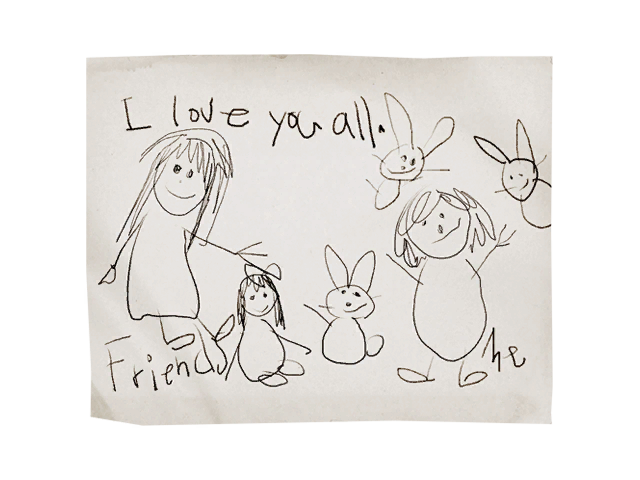 I love you all.
Friends
he